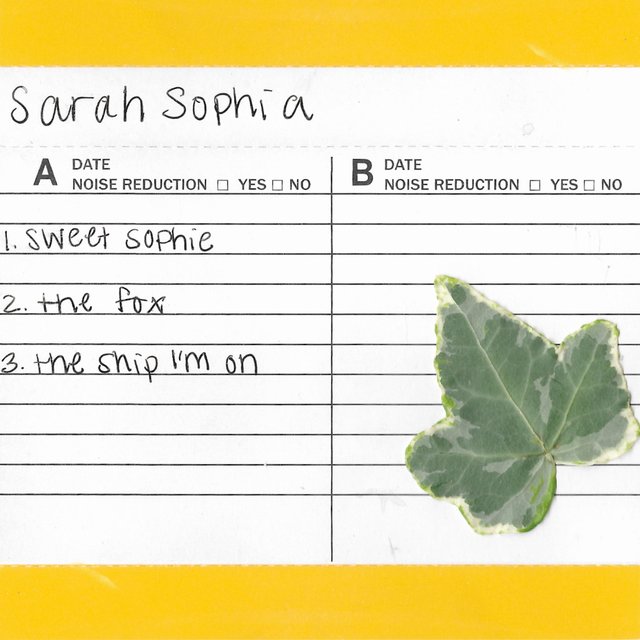 Sarah Sophia
A DATE
NOISE REDUCTION □ YES □ NO
B DATE
NOISE REDUCTION □ YES □ NO
1. sweet sophie
2. the fox
3. the ship I'm on